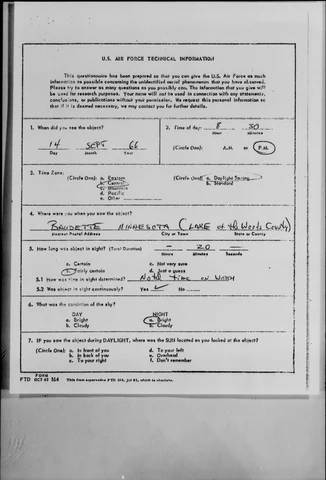 U.S. AIR FORCE TECHNICAL INFORMATION
This questionnaire has been prepared so that you can give the U.S. Air Force as much
information as possible concerning the unidentified aerial phenomenon that you have observed.
Please try to answer as many questions as you possibly can. The information that you give will
be used for research purposes. Your name will not be used in connection with any statements,
conclusions, or publications without your permission. We request this personal information so
that if it is deemed necessary, we may contact you for further details.
1. When did you see the object?
14 SEPT 66
Day Month Year
2. Time of day: 8 30
Hour Minutes
(Circle One): A.M. or P.M.
3. Time Zone:
(Circle One): a. Eastern
b. Central
c. Mountain
d. Pacific
e. Other
(Circle One): a. Daylight Saving
b. Standard
4. Where were you when you saw the object?
BAUDETTE MINNESOTA (LAKE of the Woods County)
Nearest Postal Address City or Town State or County
5. How long was object in sight? (Total Duration) — 20 —
Hours Minutes Seconds
a. Certain c. Not very sure
b. Fairly certain d. Just a guess
5.1 How was time in sight determined? Noted time on watch
5.2 Was object in sight continuously? Yes ✓ No
6. What was the condition of the sky?
DAY NIGHT
a. Bright a. Bright
b. Cloudy b. Cloudy
7. IF you saw the object during DAYLIGHT, where was the SUN located as you looked at the object?
(Circle One): a. In front of you d. To your left
b. In back of you e. Overhead
c. To your right f. Don't remember
FORM
FTD OCT 62 164 This form supersedes FTD 164, Jul 61, which is obsolete.